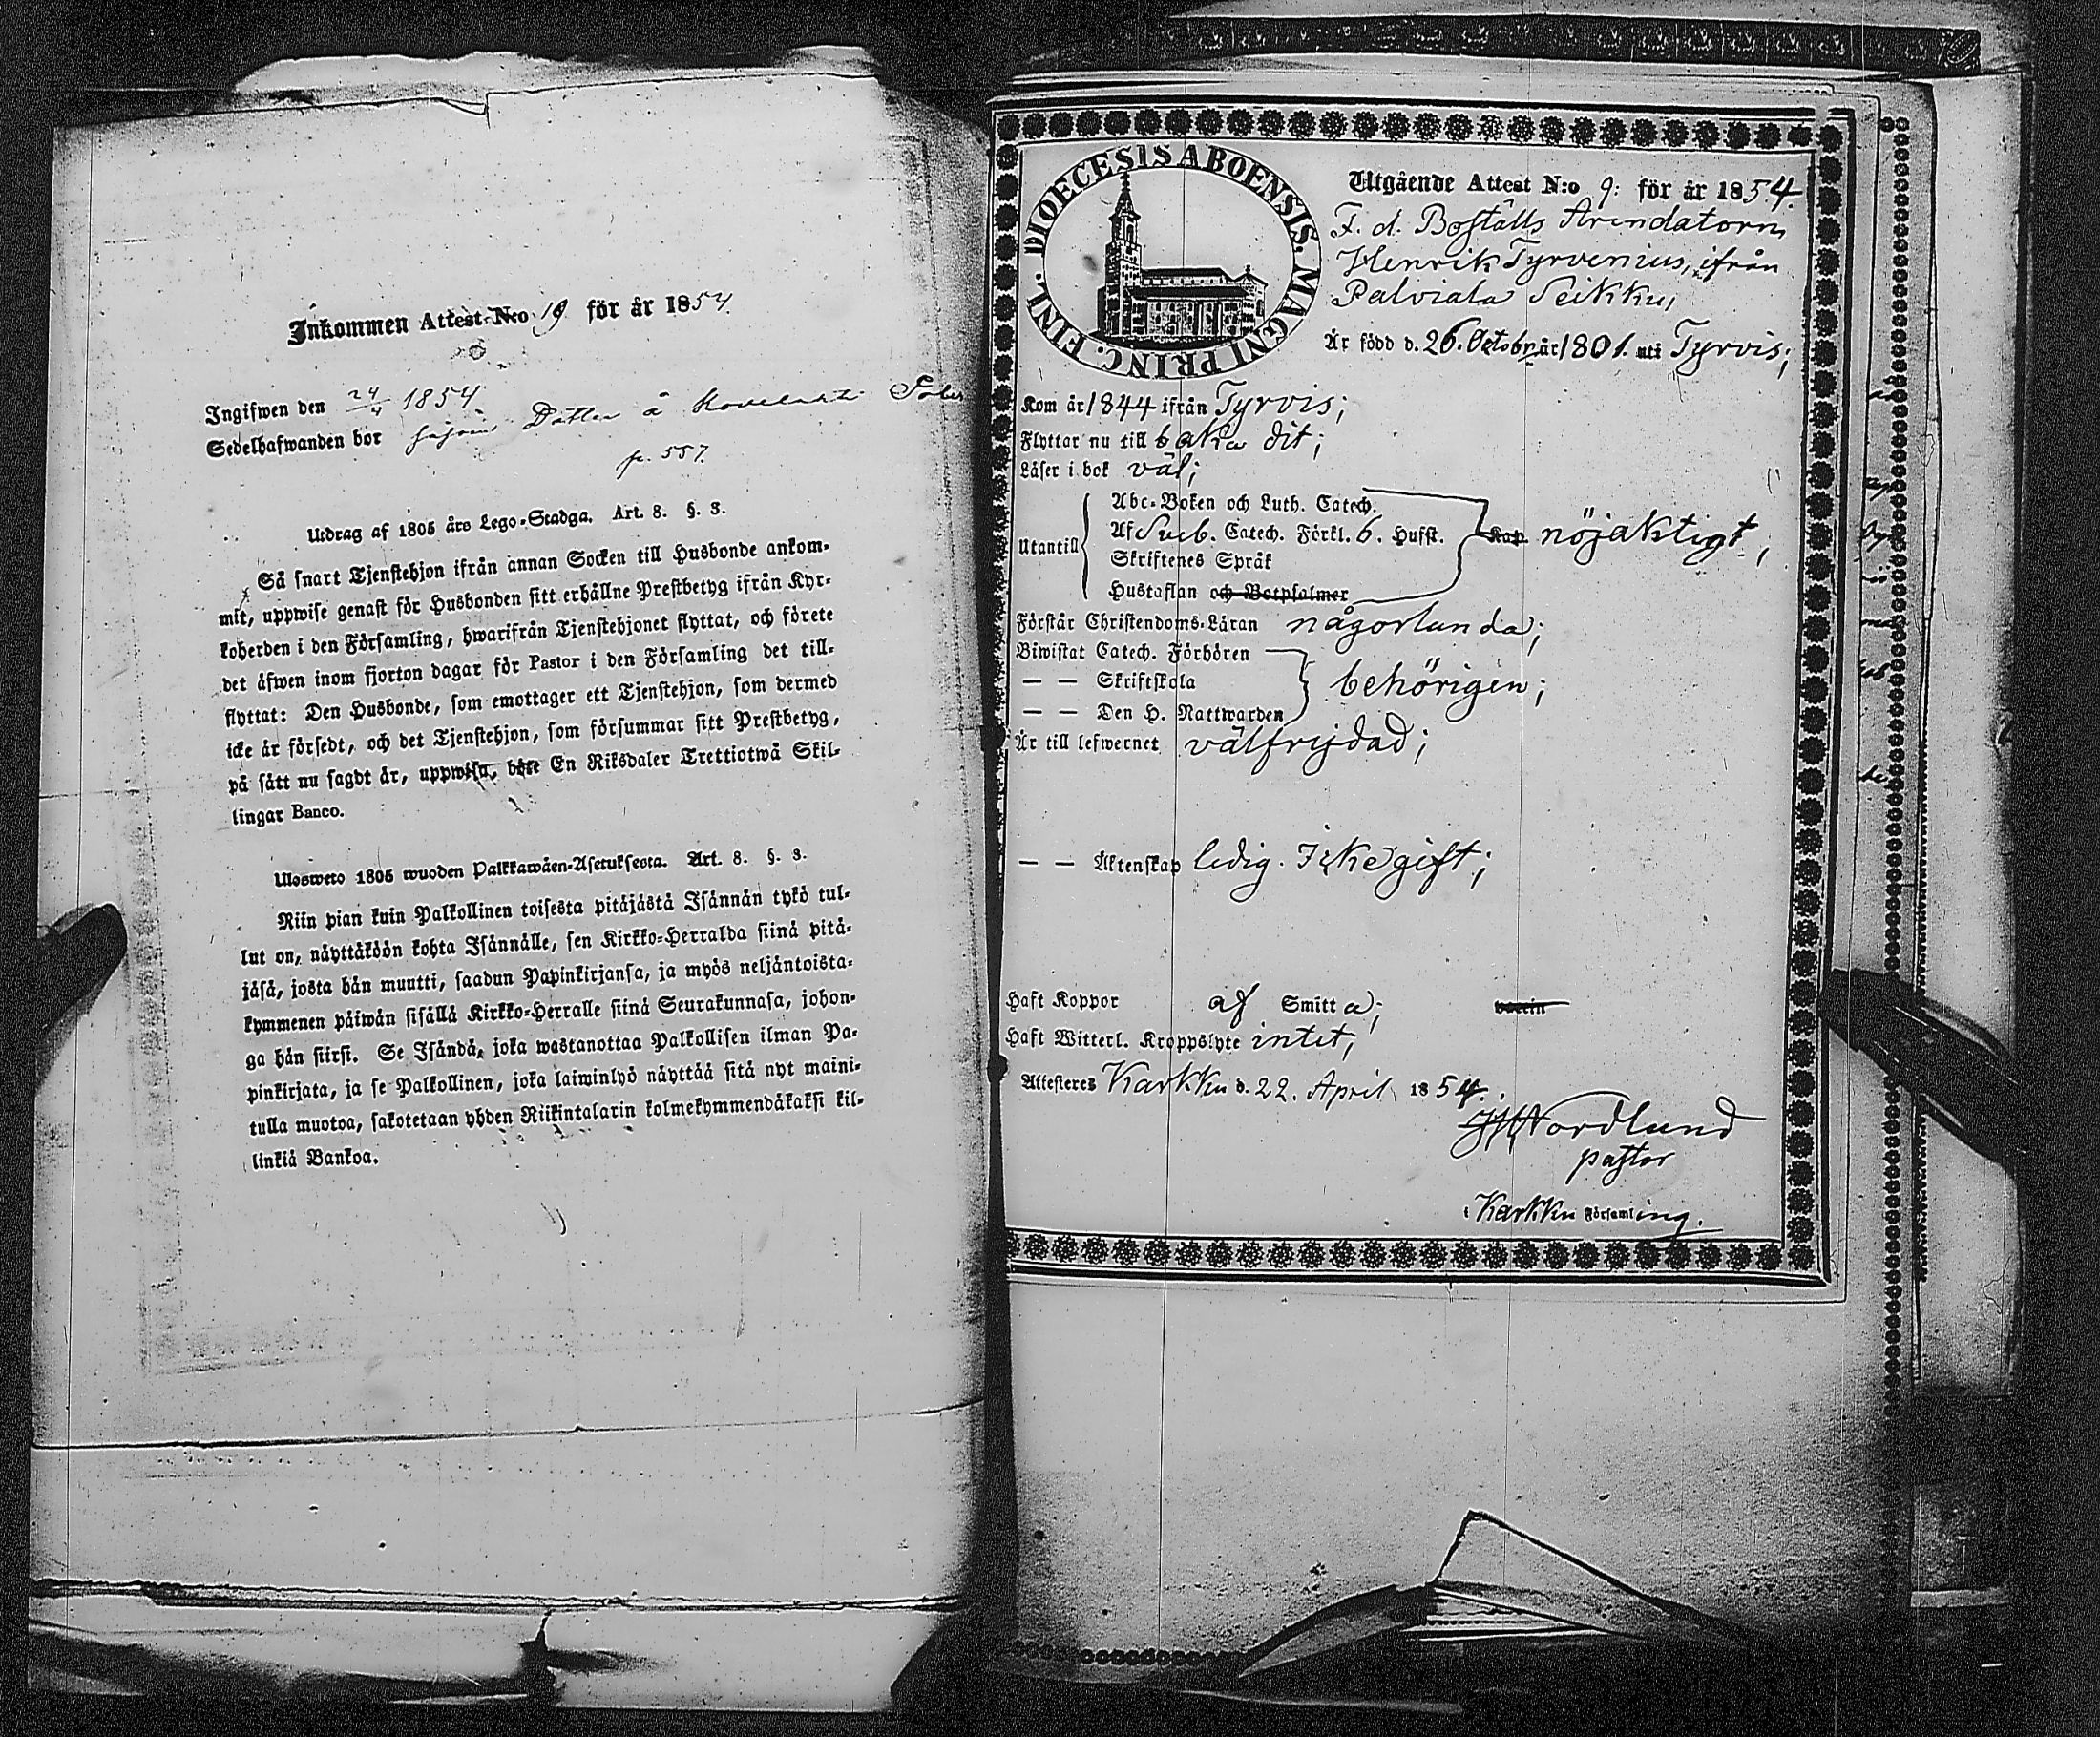 Inkommen Attest N:o 19 för år 1854.
Ingifwen den 24/4 1854
Sedelhafwanden bor Dotter å
p. 557.
Utdrag af 1805 års Lego-Stadga. Art. 8. §. 3.
Så snart Tjenstehjon ifrån annan Socken till Husbonde ankom-
mit, uppwise genast för Husbonden sitt erhållne Prestbetyg ifrån Kyr-
koherden i den Församling, hwarifrån Tjenstehjonet flyttat, och förete
det äfwen inom fjorton dagar för Pastor i den Församling det till-
flyttat: Den Husbonde, som emottager ett Tjenstehjon, som dermed
icke är försedt, och det Tjenstehjon, som försummar sitt Prestbetyg,
på sätt nu sagdt är, uppwisa, böte En Riksdaler Trettiotwå Skil-
lingar Banco.
Ulosweto 1805 wuoden Palkkawäen-Asetuksesta. Art. 8. §. 3.
Niin pian kuin Palkollinen toisesta pitäjästä Isännän tykö tul-
lut on, näyttäköön kohta Isännälle, sen Kirkko-Herralda siinä pitä-
jäsä, josta hän muutti, saadun Papinkirjansa, ja myös neljäntoista-
kymmenen päiwän sisällä Kirkko-Herralle siinä Seurakunnasa, johon-
ga hän siirsi. Se Isändä, joka wastanottaa Palkollisen ilman Pa-
pinkirjata, ja se Palkollinen, joka laiminlyö näyttää sitä nyt maini-
tulla muotoa, sakotetaan yhden Riikintalarin kolmekymmendäkaksi kil-
linkiä Bankoa.
DIOECESIS ABOENSIS. MAGNI PRINC. FINL.
Utgående Attest N:o 9: för år 1854.
F. d. Boställs Arendatorn,
Henrik Tyrvenius, ifrån
Palviala Seikku,
Är född d. 26. Octobr år 1801. uti Tyrvis;
Kom år 1844 ifrån Tyrvis;
Flyttar nu till baka dit;
Läser i bok väl;
Utantill
Abc-Boken och Luth. Catech.
Af Sveb. Catech. Förkl. 6. Hufst.
Skriftenes Språk
Hustaflan och Botpsalmer
Kap nöjaktigt;
Förstår Christendoms-Läran någorlunda;
Biwistat Catech. Förhören
— — Skriftskola behörigen;
— — Den H. Nattwarden
Är till lefwernet välfrejdad;
— — Äktenskap ledig. Icke gift;
Haft Koppor af Smitta;
Haft Witterl. Kroppslyte intet;
Attesteres Karkku d. 22. April 1854.
Nordlund
pastor
i Karkku Församling.